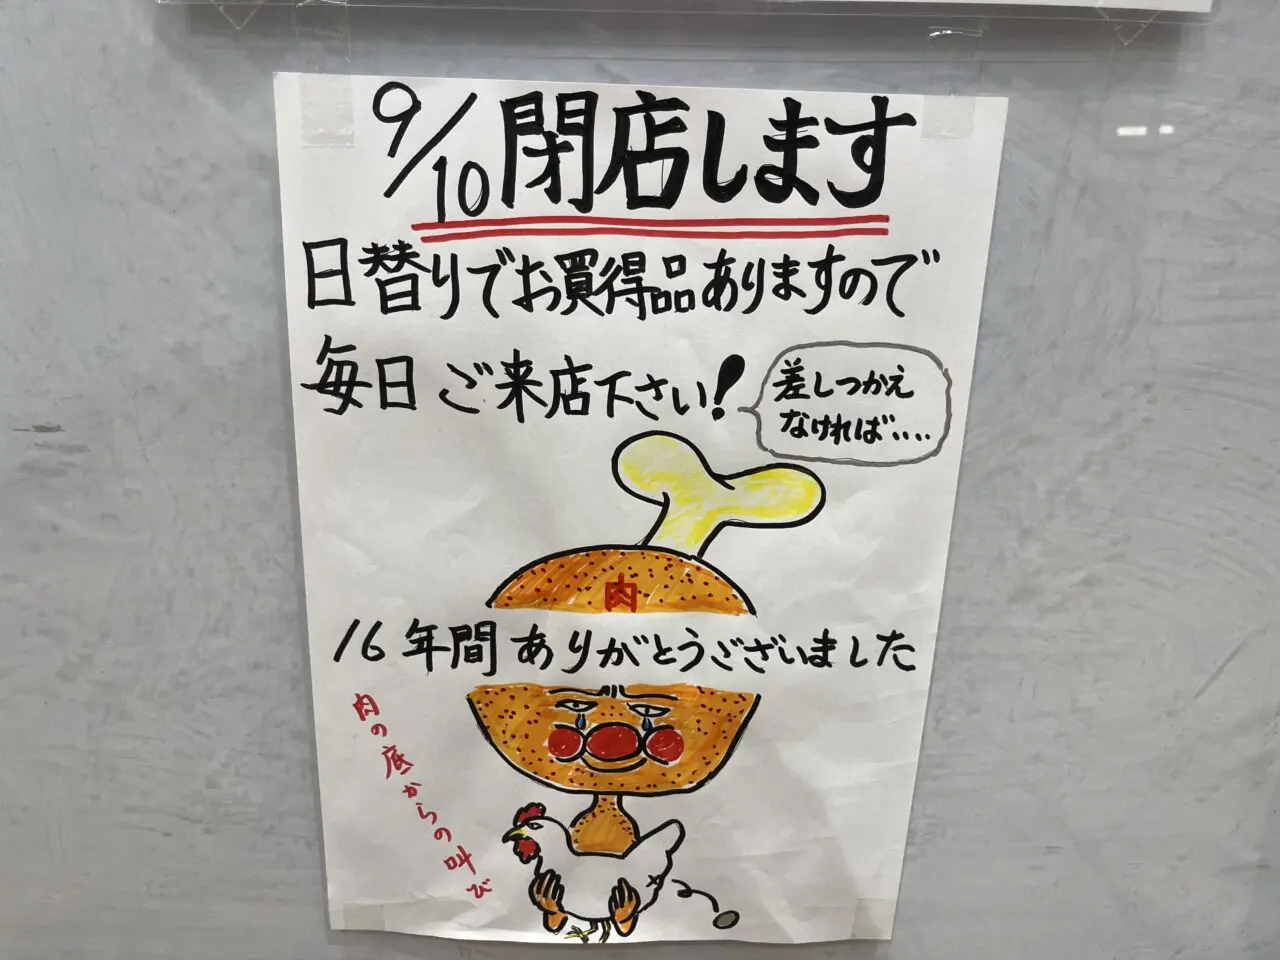 9/10閉店します
日替りでお買得品ありますので
毎日ご来店下さい!
差しつかえ
なければ‥‥
肉
16年間ありがとうございました
肉の底からの叫び